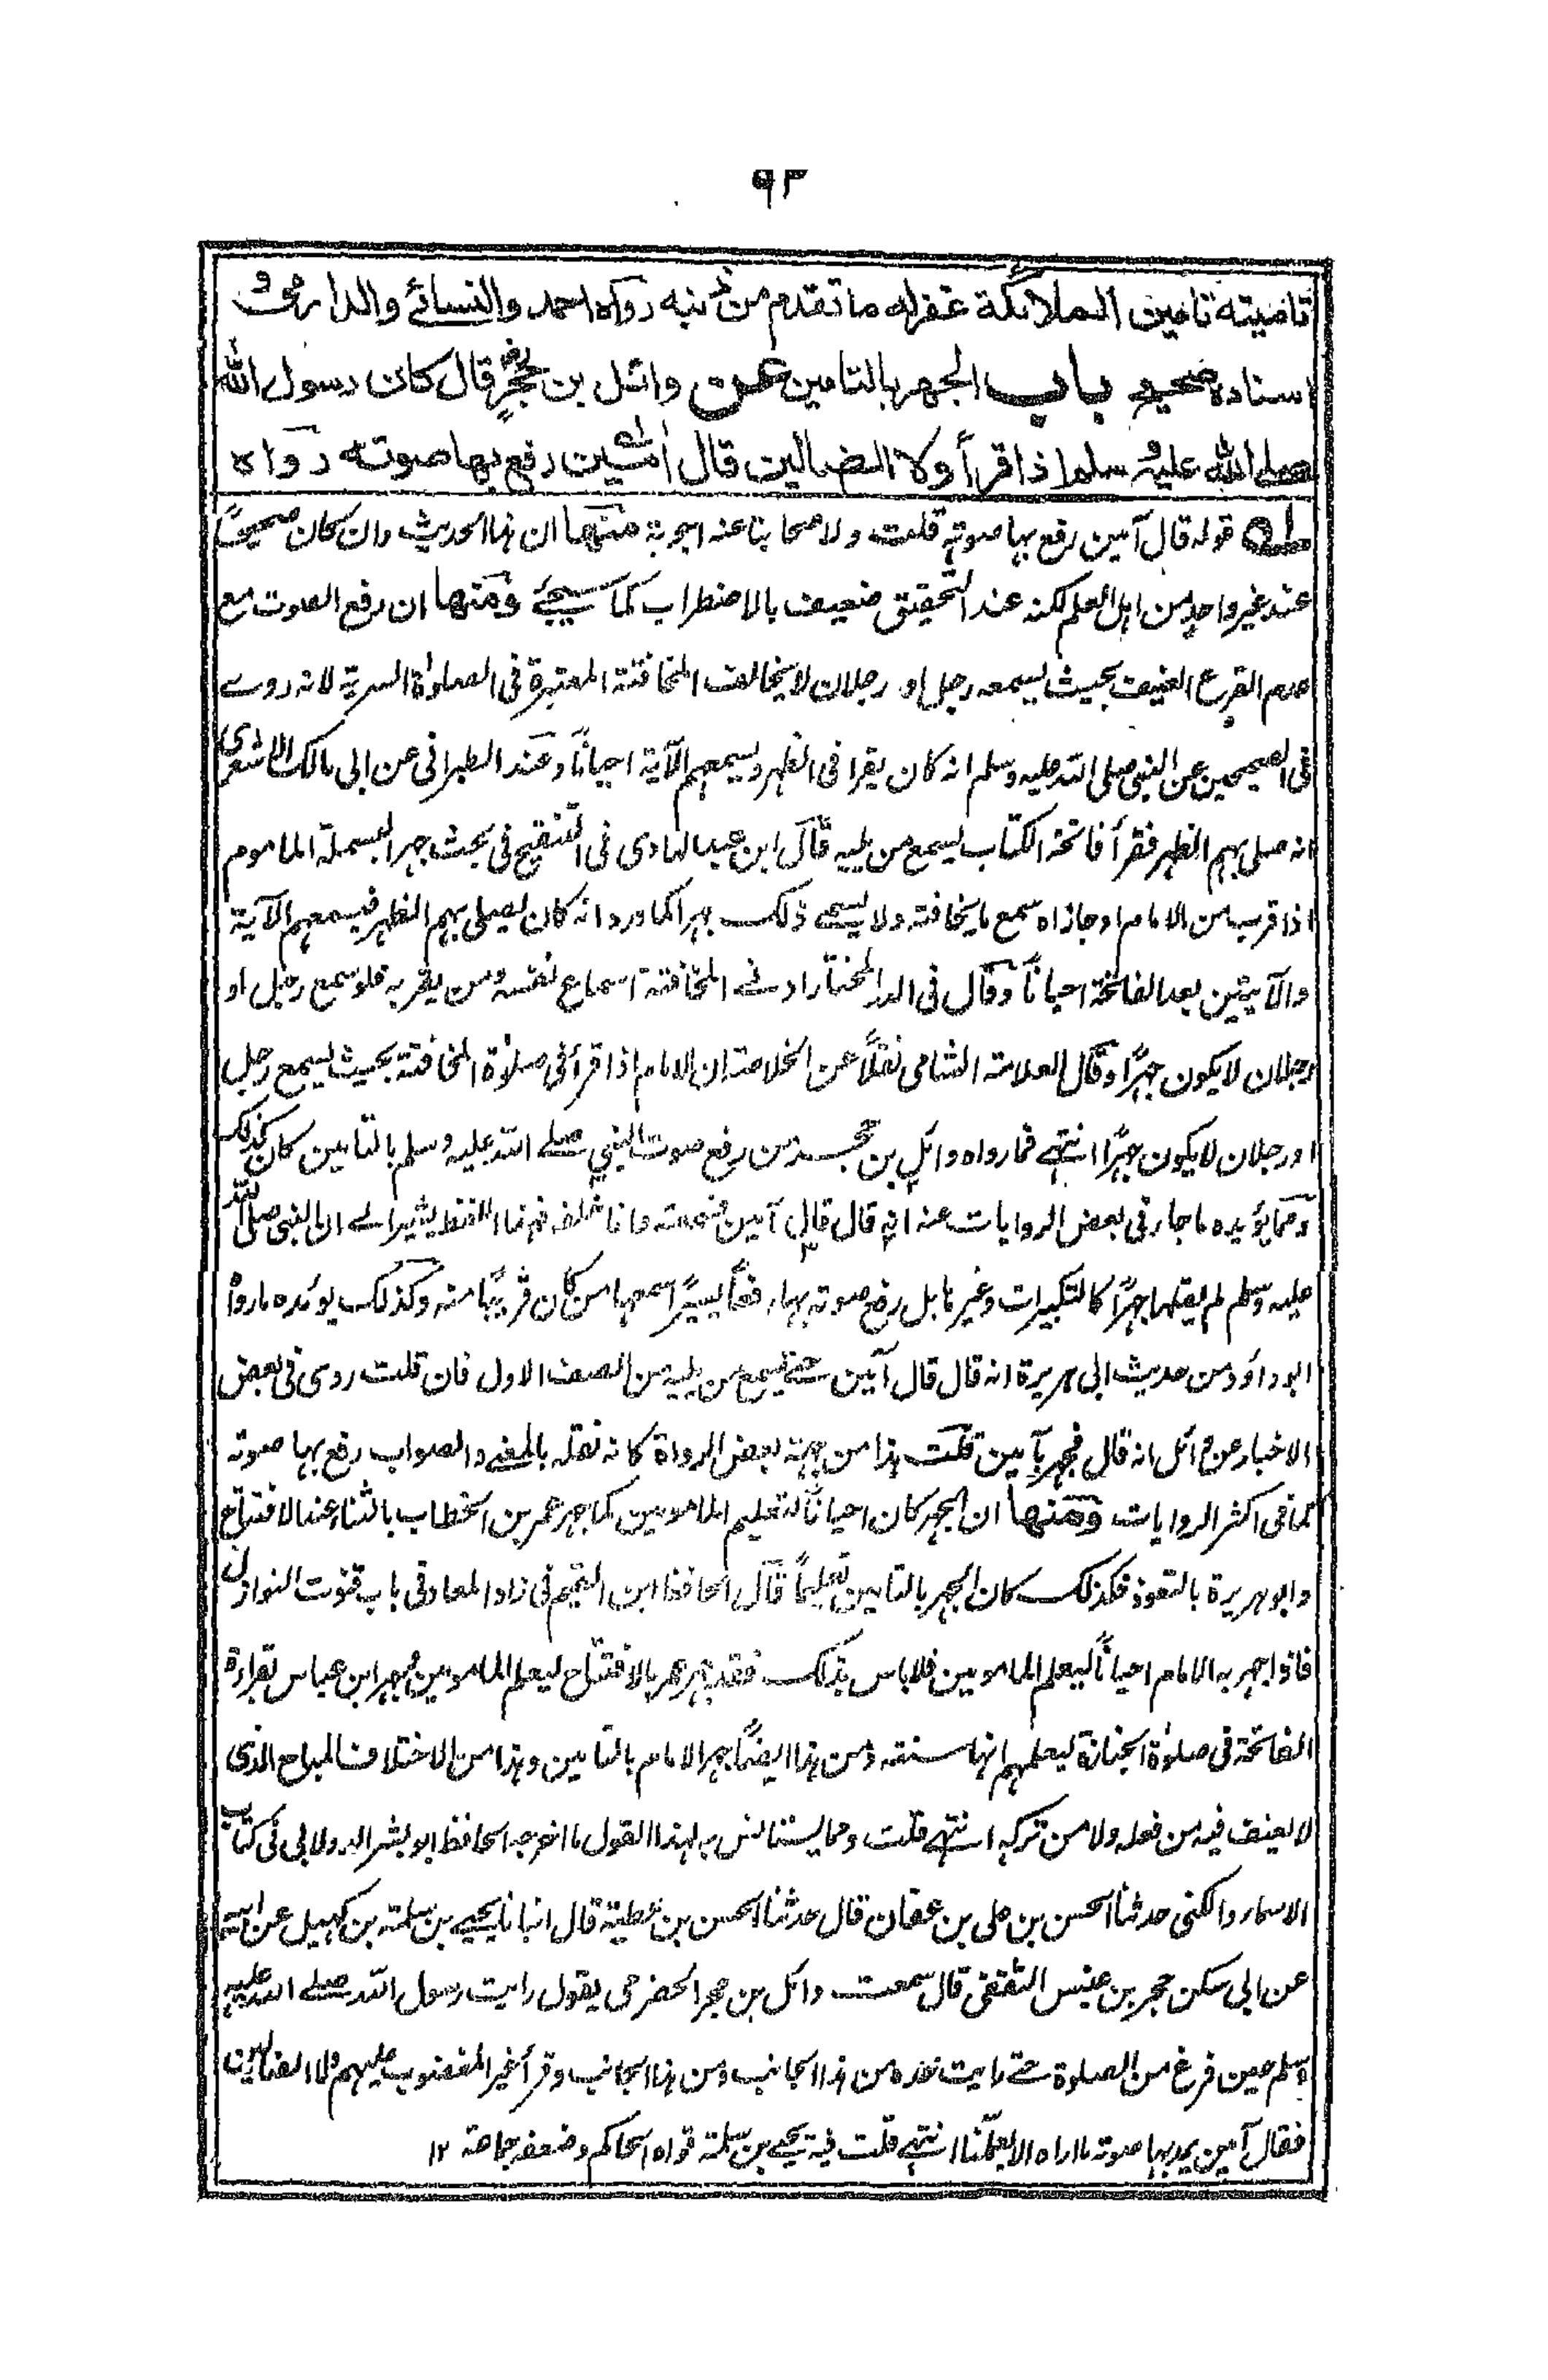 ۹۳
تامينه تامين الملائكة غفر له ما تقدم من ذنبه رواه احمد والنسائے والدارمی و
اسناده صحيح باب الجهر بالتامين عن وائل بن حُجْرٍ قال كان رسول الله
صلے الله عليه وسلم اذا قرأ ولا الضالين قال اٰمين رفع بها صوته رواه
قوله قال آمين رفع بها صوته قلت ولاصحابنا عنه اجوبة منها ان هذا الحديث وان كان صحيحًا
عند غير واحد من اهل العلم لكنه عند التحقيق ضعيف بالاضطراب كما سيجئے ومنها ان رفع الصوت مع
عدم القرع العنيف بحيث يسمعه رجل او رجلان لا يخالف المخافتة المعتبرة فى الصلوٰة السرية لانه روے
فى الصحيحين عن النبى صلى الله عليه وسلم انه كان يقرا فى الظهر ويسمعهم الآية احيانًا وعند الطبرانى عن ابى مالك الاشعرى
انه صلى بهم الظهر فقرأ فاتحة الكتاب يسمع من يليه قال ابن عبد الهادى فى التنقيح فى بحث جهر البسملة الماموم
اذا قرب من الامام او حاذاه سمع ما يخافته ولا يسمے ذلك جهرا كما ورد انه كان يصلى بهم الظهر فيسمعهم الآية
والآيتين بعد الفاتحة احيانًا وقال فى الدر المختار ادنے المخافتة اسماع نفسه ومن يقربه فلو سمع رجل او
رجلان لا يكون جهرًا وقال العلامة الشامى نقلًا عن الخلاصة ان الامام اذا قرأ فى صلوٰة المخافتة بحيث يسمع رجل
او رجلان لا يكون جهرًا انتهے فما رواه وائل بن حجر من رفع صوت النبي صلے الله عليه وسلم بالتامين كان كذلك
ومما يؤيده ما جاء فى بعض الروايات عنه انه قال قال آمين فسمعته وانا خلفه فهذا اللفظ يشير الے ان النبى صلى الله
عليه وسلم لم يقلها جهرًا كالتكبيرات وغيرها بل رفع صوته بها رفعًا يسيرًا سمعها من كان قريبًا منه وكذلك يوئده ما رواه
ابو داؤد من حديث ابى هريرة انه قال قال آمين حتے يسمع من يليه من الصف الاول فان قلت روى فى بعض
الاخبار عن وائل انه قال فجهر بآمين قلت هذا من جهة بعض الرواة كانه نقله بالمعنے والصواب رفع بها صوته
كما فى اكثر الروايات ومنها ان الجهر كان احيانًا لتعليم المامومين كما جهر عمر بن الخطاب بالثناء عند الافتتاح
وابو هريرة بالتعوذ فكذلك كان الجهر بالتامين تعليمًا قال الحافظ ابن القيم فى زاد المعاد فى باب قنوت النوازل
فاذا جهر به الامام احيانًا ليعلم المامومين فلا باس بذلك فقد جهر عمر بالافتتاح ليعلم المامومين وجهر ابن عباس بقراءة
الفاتحة فى صلوٰة الجنازة ليعلمهم انها سنة ومن هذا ايضًا جهر الامام بالتامين وهذا من الاختلاف المباح الذى
لا يعنف فيه من فعله ولا من تركه انتهے قلت ومما يستانس به لهذا القول ما اخرجه الحافظ ابو بشر الدولابى فى كتاب
الاسماء والكنى حدثنا الحسن بن على بن عفان قال حدثنا الحسن بن عطية قال انبانا يحيے بن سلمة بن كهيل عن ابيه
عن ابى سكن حجر بن عنبس الثقفى قال سمعت وائل بن حجر الحضرمى يقول رايت رسول الله صلے الله عليه
وسلم حين فرغ من الصلوة حتے رايت خده من هذا الجانب ومن هذا الجانب وقرأ غير المغضوب عليهم ولا الضالين
فقال آمين يمد بها صوته ما اراه الا يعلّمنا انتهے قلت فيه يحيے بن سلمة قواه الحاكم وضعفه جماعة ۱۲